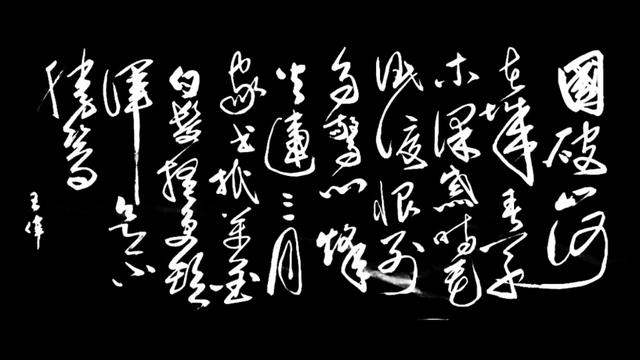 國破山河
在城春草
木深感時花
濺淚恨別
鳥驚心烽
火連三月
家書抵萬金
白髮搔更短
渾欲不
勝簪
王偉